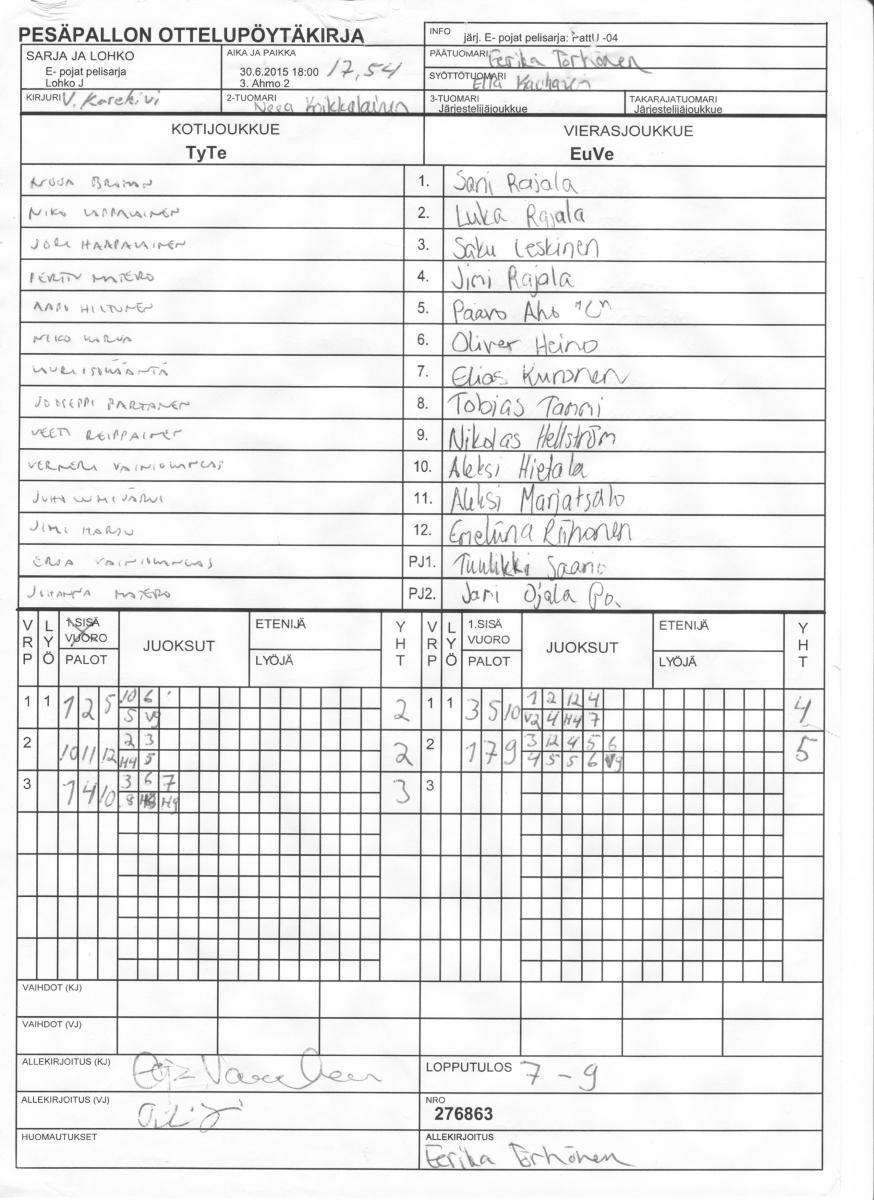 PESÄPALLON OTTELUPÖYTÄKIRJA
INFO järj. E- pojat pelisarja: PattU -04
SARJA JA LOHKO
E- pojat pelisarja
Lohko J
AIKA JA PAIKKA
30.6.2015 18:00 17,54
3. Ahmo 2
PÄÄTUOMARI Eerika Törhönen
SYÖTTÖTUOMARI Ella
KIRJURI V. Karekivi
2-TUOMARI Neea Koikkalainen
3-TUOMARI
Järjestelijäjoukkue
TAKARAJATUOMARI
Järjestelijäjoukkue
KOTIJOUKKUE
TyTe
VIERASJOUKKUE
EuVe
1. Sani Rajala
NIKO LAPPALAINEN 2. Luka Rajala
JONI HAAPALAINEN 3. Saku Leskinen
PERTTU MATERO 4. Jimi Rajala
AAPO HILTUNEN 5. Paavo Aho "C"
6. Oliver Heino
7. Elias Kuronen
JOOSEPPI PARTANEN 8. Tobias Tammi
VEETI REIPPAINEN 9. Nikolas Hellström
VERNERI VAINIOKANGAS 10. Aleksi Hietala
JUHO LUMIJÄRVI 11. Aleksi Marjatsalo
JIMI HARJU 12. Emeliina Riihonen
ERJA VAINIOKANGAS PJ1. Tuulikki Saario
JOHANNA MATERO PJ2. Jari Ojala Po.
VRP LYÖ 1.SISÄ VUORO PALOT JUOKSUT ETENIJÄ LYÖJÄ YHT
VRP LYÖ 1.SISÄ VUORO PALOT JUOKSUT ETENIJÄ LYÖJÄ YHT
1 1 1 2 5 10 6 2
5 V9
1 1 3 5 10 1 2 12 4 4
V2 4 H4 7
2 10 11 12 2 3 2
H4 5
2 1 7 9 3 12 4 5 6 5
4 5 5 6 V9
3 1 4 10 3 6 7 3
8 H9
3
VAIHDOT (KJ)
VAIHDOT (VJ)
ALLEKIRJOITUS (KJ)
LOPPUTULOS 7 - 9
ALLEKIRJOITUS (VJ)
NRO
276863
HUOMAUTUKSET
ALLEKIRJOITUS
Eerika Törhönen